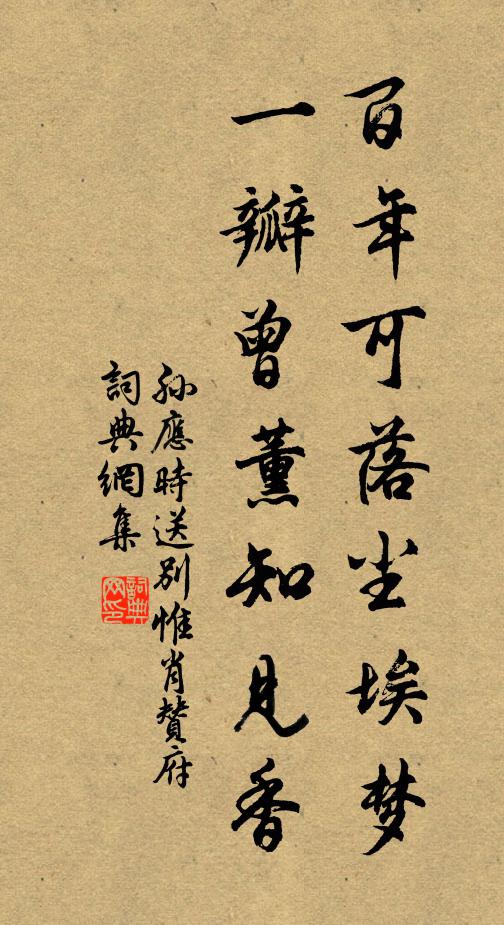 百年可落尘埃梦
一瓣曾薰知见香
孙應時送别惟肖贊府
詞典網集
詞典网印